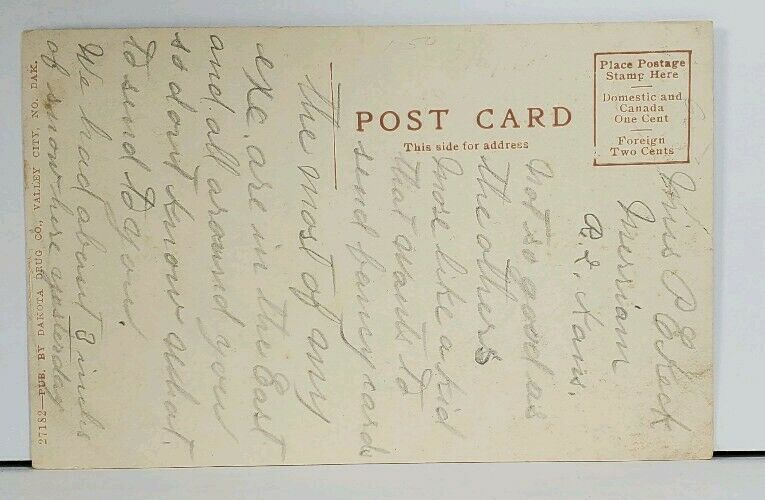 POST CARD
This side for address
Place Postage
Stamp Here
Domestic and
Canada
One Cent
Foreign
Two Cents
Miss P. E Keck
Merriam
R. 2. Kans.
Not so good as
the others
More like a kid
that wants to
send fancy cards
The most of my
exc. are in the East
and all around you
so don't know what
to send to you.
We had about 8 inchs
of snow here yesterday
27182—PUB. BY DAKOTA DRUG CO., VALLEY CITY, NO. DAK.